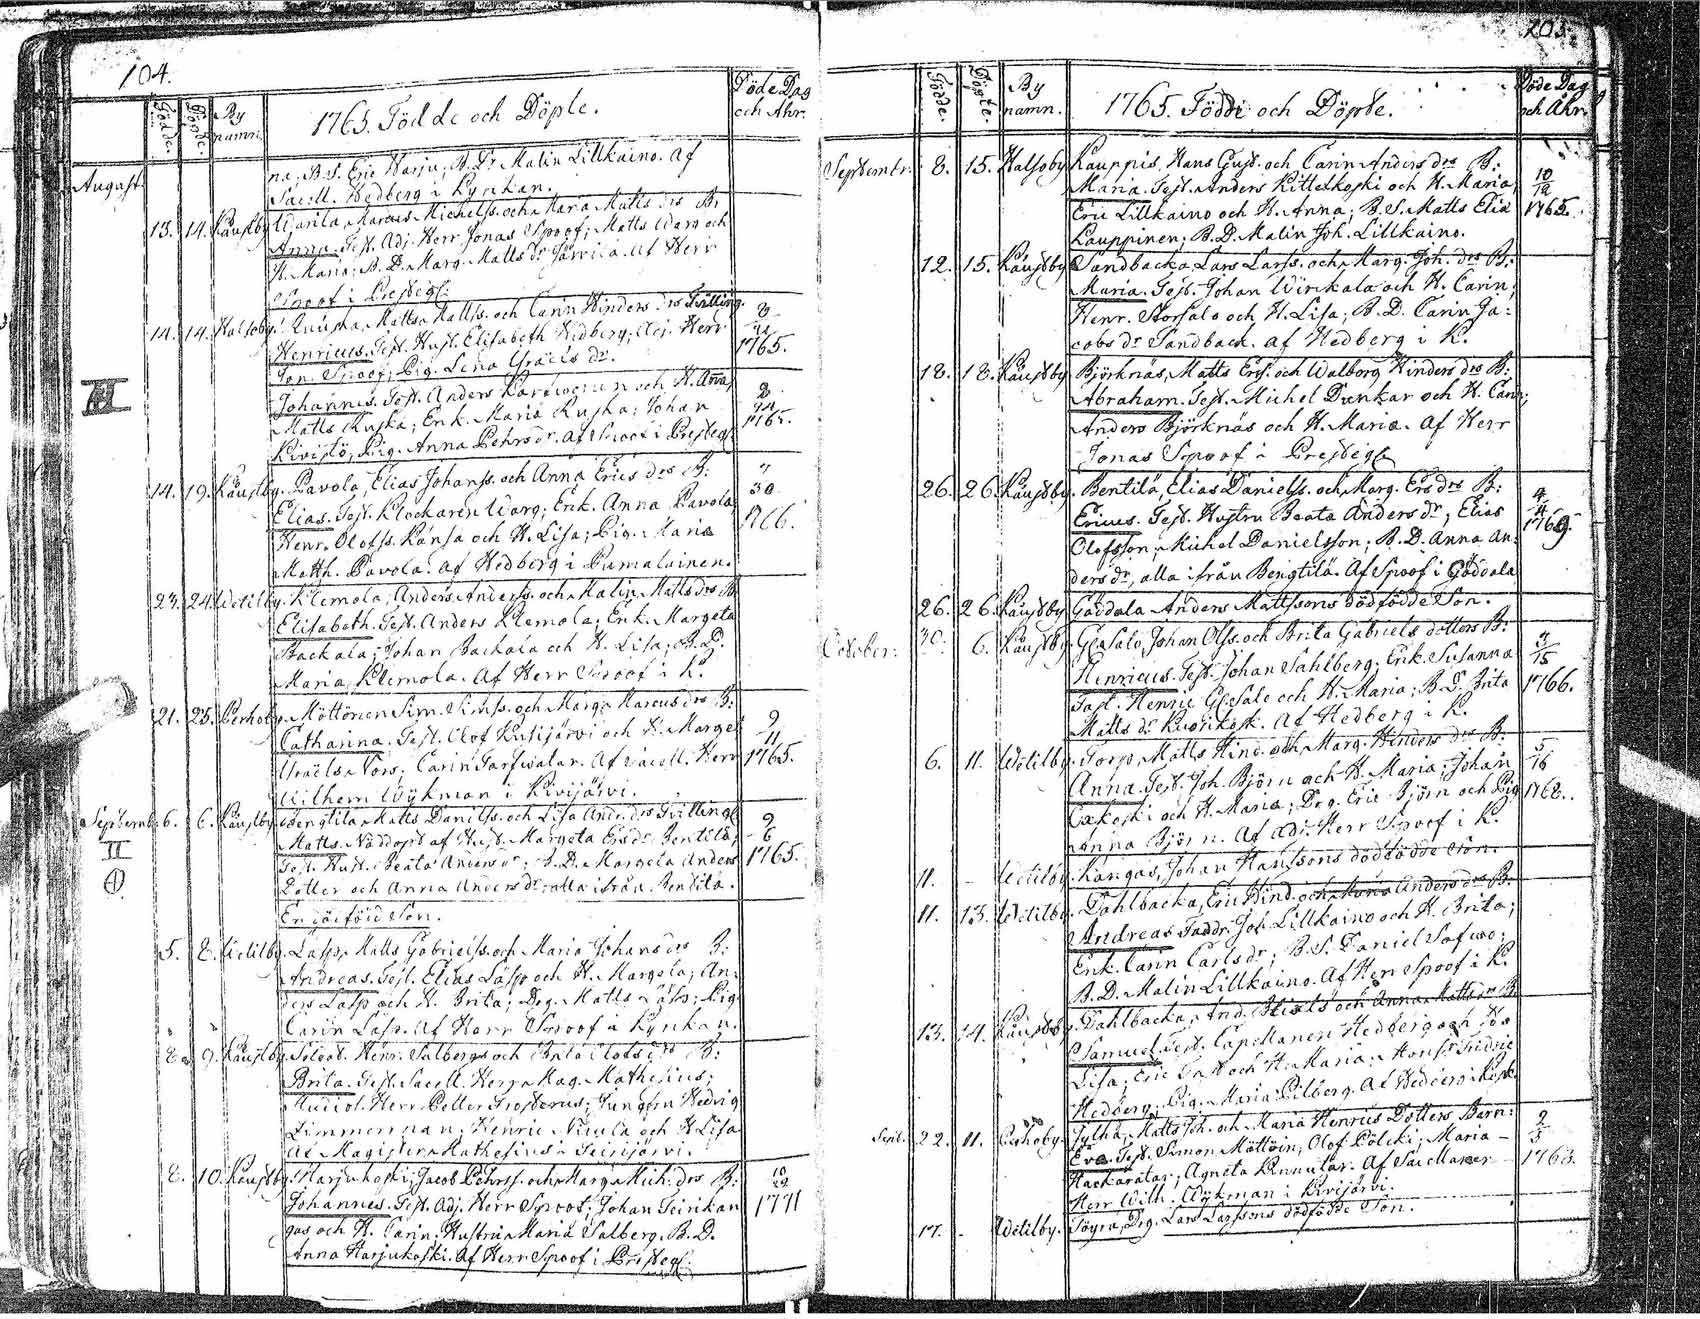 104.
Födde.
Döpte.
By namn.
1765. Födde och Döpte.
Döde Dag och Ahr.
August.
na; B.S. Eric Harju; B. Dr Malin Lillkaino. Af
Sacell. Hedberg i Kyrkan.
13. 14. Käustby. Marcus Michelss. och Maria Matts drs B:
Anna. Test. Adj. Herr Jonas Spoof; Matts Warg och
H. Maria; B. D. Marg. Matts dr Järvilä. Af Herr
Spoof i Prestegl.
14. 14. Halsoby. Matts Mattss. och Carin Hinders drs Tvilling.
Henricus. Test. Hust. Elisabeth Hedberg; Adj. Herr
Jon. Spoof; Pig. Lena Israels dr.
1765.
Johannes. Test. Anders och H. Anna;
Matts Kujka; Enk. Maria Kujka; Johan
Kivistö; Pig. Anna Pehrs dr. Af Spoof i Prestegl.
1765.
14. 19. Käustby. Pavola, Elias Johanss. och Anna Erics drs B:
Elias. Test. Klockaren Warg; Enk. Anna Pavola;
Henr. Olofss. Känsä och H. Lisa; Pig. Maria
Matth. Pavola. Af Hedberg i Pumalainen.
30
1766.
23. 24. Wetilby. Klemola, Anders Anderss. och Malin Matts drs B.
Elisabeth. Test. Anders Klemola; Enk. Margeta
Backala; Johan Backala och H. Lisa; B. D.
Maria Klemola. Af Herr Spoof i K.
21. 25. Perhoby. Möttönen Sim. Simss. och Marg. Marcus drs B:
Catharina. Test. Olof Kusijärvi och H. Marget
Israels Tors; Carin Af Sacell. Herr
Wilhem Wykman i Kivijärvi.
9/11
1765.
Septembr. 6. 6. Käustby. Bengtila Matts Danilss. och Lisa And. drs Tvillingl
II
Matts. Nöddöpt af Hust. Margeta Ers dr Bentilä;
Test. Hust. Beata Anders dr; B. D. Margeta Anders
Dotter och Anna Anders dr; alla ifrån Bentilä.
9/6
1765.
En dödföd Son.
5. 8. Wetilby. Läsp, Matts Gabrielss. och Maria Johans drs B:
Andreas. Test. Elias Läsp och H. Margeta; An-
ders Läsp och H. Brita; Drg. Matts Läsp; Pig
Carin Läsp. Af Herr Spoof i Kyrkan.
8. 9. Käustby. Soldat. Henr. Salbergs och Brita Olofs drs B:
Brita. Test. Sacell. Herr Mag. Mathesius;
Studios. Herr Petter Frosterus; Jungfru Hedvig
Zimmerman; Henric Niculä och H Lisa
Af Magister Mathesius i
8. 10. Käustby. Harjukoski; Jacob Pehrss. och Marg. Mich. drs B:
Johannes. Test. Adj. Herr Spoof; Johan Teirikan
gas och H. Carin; Hustru Maria Salberg, B. D.
Anna Harjukoski. Af Herr Spoof i Prestegl.
10/22
1771
205.
Födde.
Döpte.
By namn.
1765. Födde och Döpte.
Döde Dag och Ahr.
Septembr. 8. 15. Halsoby Kauppis, Hans Gust. och Carin Anders drs B:
Maria. Test. Anders Kittelkoski och H. Maria;
Eric Lillkaino och H. Anna; B. S. Matts Elia
Lauppinen; B. D. Malin Joh. Lillkaino.
10/12
1765.
12. 15. Käustby Sandbacka, Lars Larss. och Marg. Joh. drs B:
Maria. Test. Johan Wirkala och H. Carin;
Henr. Storsalo och H. Lisa; B. D. Carin Ja-
cobs dr Sandback. af Hedberg i K.
18. 18. Käustby Björknäs, Matts Erss. och Walborg Hinders drs B:
Abraham. Test. Michel Dunkar och H. Carin;
Anders Björknäs och H. Maria. Af Herr
Jonas Spoof i Prestegl
26. 26. Käustby. Bentilä, Elias Danielss. och Marg. Ers drs B:
Ericus. Test. Hustru Beata Anders dr; Elias
Olofsson; Michel Danielsson; B. D. Anna An-
ders dr, alla ifrån Bengtilä. Af Spoof i Göddala
4/4
1769.
26. 26. Käustby Göddala Anders Mattssons dödfödde Son.
October. 30. 6. Käustby. Johan Olss. och Brita Gabriels dotters B:
Henricus. Test. Johan Sahlberg; Enk. Susanna
Henric och H. Maria; B. D. Brita
Matts dr Af Hedberg i K.
3/15
1766.
6. 11. Wetilby. Torp, Matts Hind. och Marg. Hinders drs B:
Anna. Test. Joh. Björn och H. Maria; Johan
och H. Maria; Drg. Eric Björn och Pig
Anna Björn. Af Adj. Herr Spoof i K.
5/16
1768.
11. - Wetilby. Kangas, Johan Hanssons dödfödde Son.
11. 13. Wetilby. Dahlbacka, Eric Hind. och Maria Anders drs B:
Andreas Faddr. Joh. Lillkaino och H. Brita;
Enk. Carin Carls dr; B. S. Daniel
B. D. Malin Lillkaino. Af Herr Spoof i K.
13. 14. Käustby. Dahlbacka, And. och Anna Matts drs B.
Samuel. Test. Capellanen Hedberg och
Lisa; Eric och H. Maria;
Hedberg; Pig. Maria Pilberg. Af Hedberg i
Sept. 22. 11. Perhoby. Jylhä, Matts Joh. och Maria Henrics Dotters Barn:
Eva. Test. Simon Möttöin; Olof Pölcki; Maria
Hackaratar; Agneta Kinnutar. Af Sacellanen
Herr Wilh. Wykman i Kivijärvi.
2/3
1768.
17. - Wetilby. Töyrä, Drg. Lars Larssons dödfödde Son.